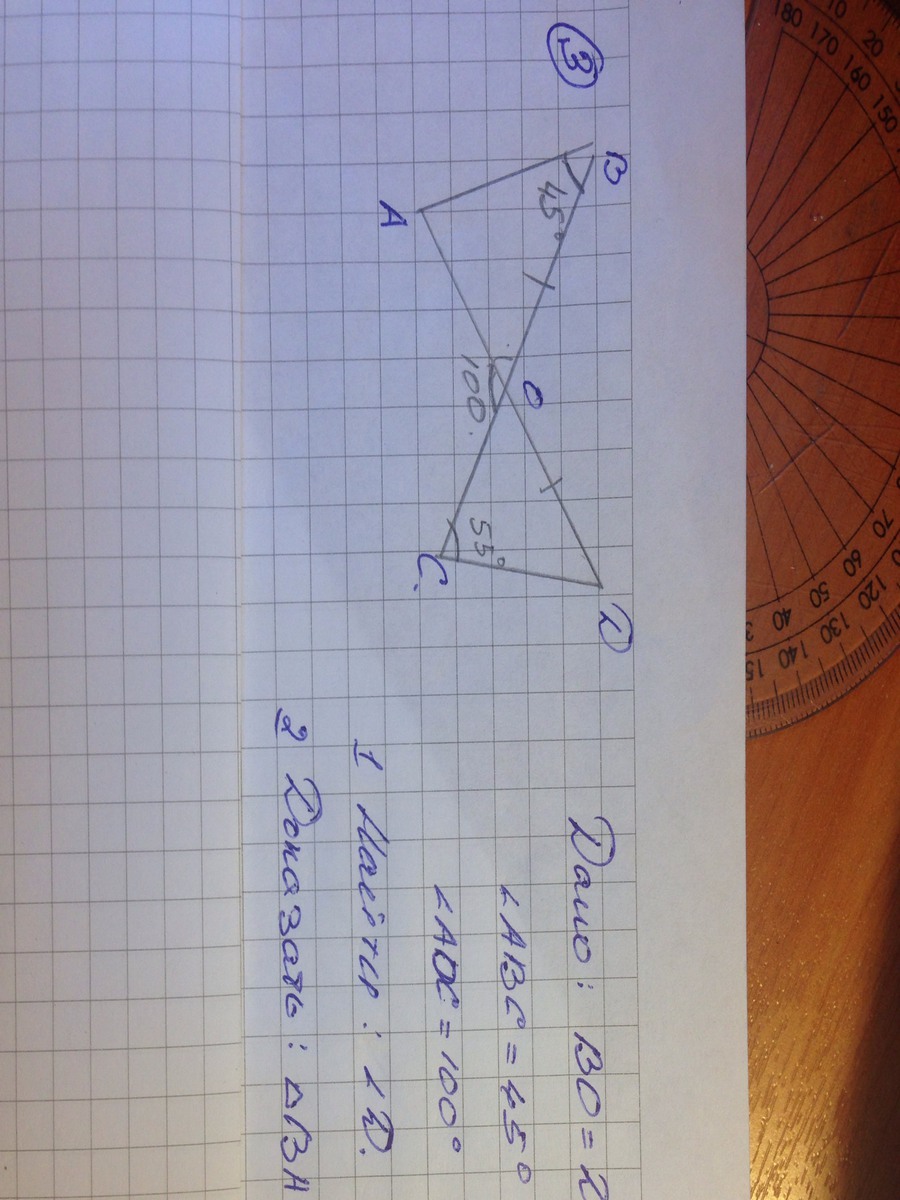 3
B
45°
A
O
100.
55°
C
D
Дано: BO =
∠ABC = 45°
∠AOC = 100°
1 Найти: ∠D.
2 Доказать: ΔBA
180 170 160 150
10 20
70 60 50 40
120 130 140 15